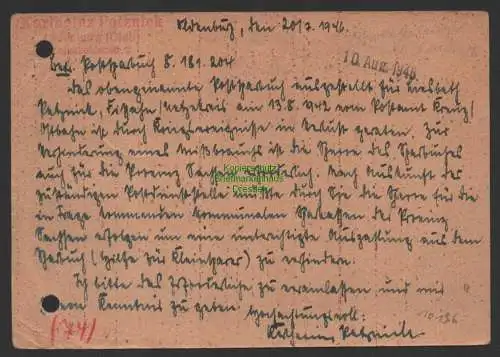 Karlheinz Patznick
Oldenburg, den 20/7. 1946.
10. Aug. 1946
betr. Postsparbuch 8.181.204
Das obengenannte Postsparbuch ausgestellt für Liesbeth
am 13.8.1942 vom Postamt Kreuz/
Ostbahn ist durch Kriegsereignisse in Verlust geraten. Zur
Verhinderung eines Mißbrauchs ist die Sperre des Sparbuches
auch für die Provinz Sachsen Nach Auskunft der
zuständigen Postdienststelle durch Sie die Sperre für die
in Frage kommenden kommunalen Sparkassen der Provinz
Sachsen erfolgen um eine unberechtigte Auszahlung aus dem
Sparbuch (Hilfe für Kleinsparer) zu verhindern.
Ich bitte das Erforderliche zu veranlassen und mir
Kenntnis zu geben. Hochachtungsvoll:
Karlheinz Patznick
Kopierschutz
Briefmarkenhaus
Dresden
(74)